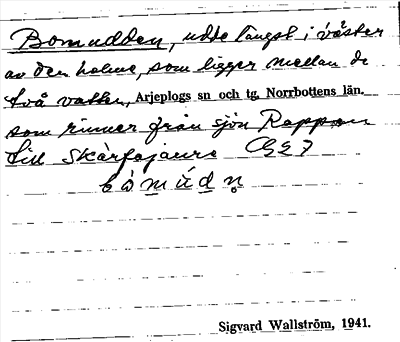 Bomudden, udde längst i väster
av den holme, som ligger mellan de
två vatten, Arjeplogs sn och tg, Norrbottens län.
som rinner från sjön Rappen
till Skärfajaure
Sigvard Wallström, 1941.